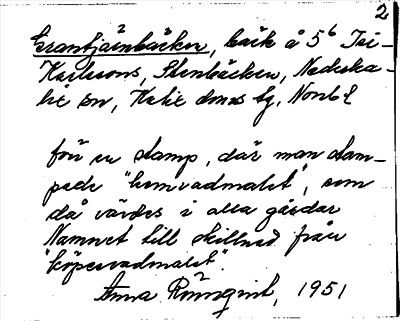 2
Grantjärnbäcken, bäck å 5⁶ Tri-
Karlssons, Stenbäcken, Nederka-
lie sn, Kalie doms Sg, Norrb l
för en stamp, där man stam-
pade "hemvadmalet", som
då vävdes i alla gårdar
Namnet till skillnad från
"köpesvadmalet".
Anna Rönnqvist, 1951